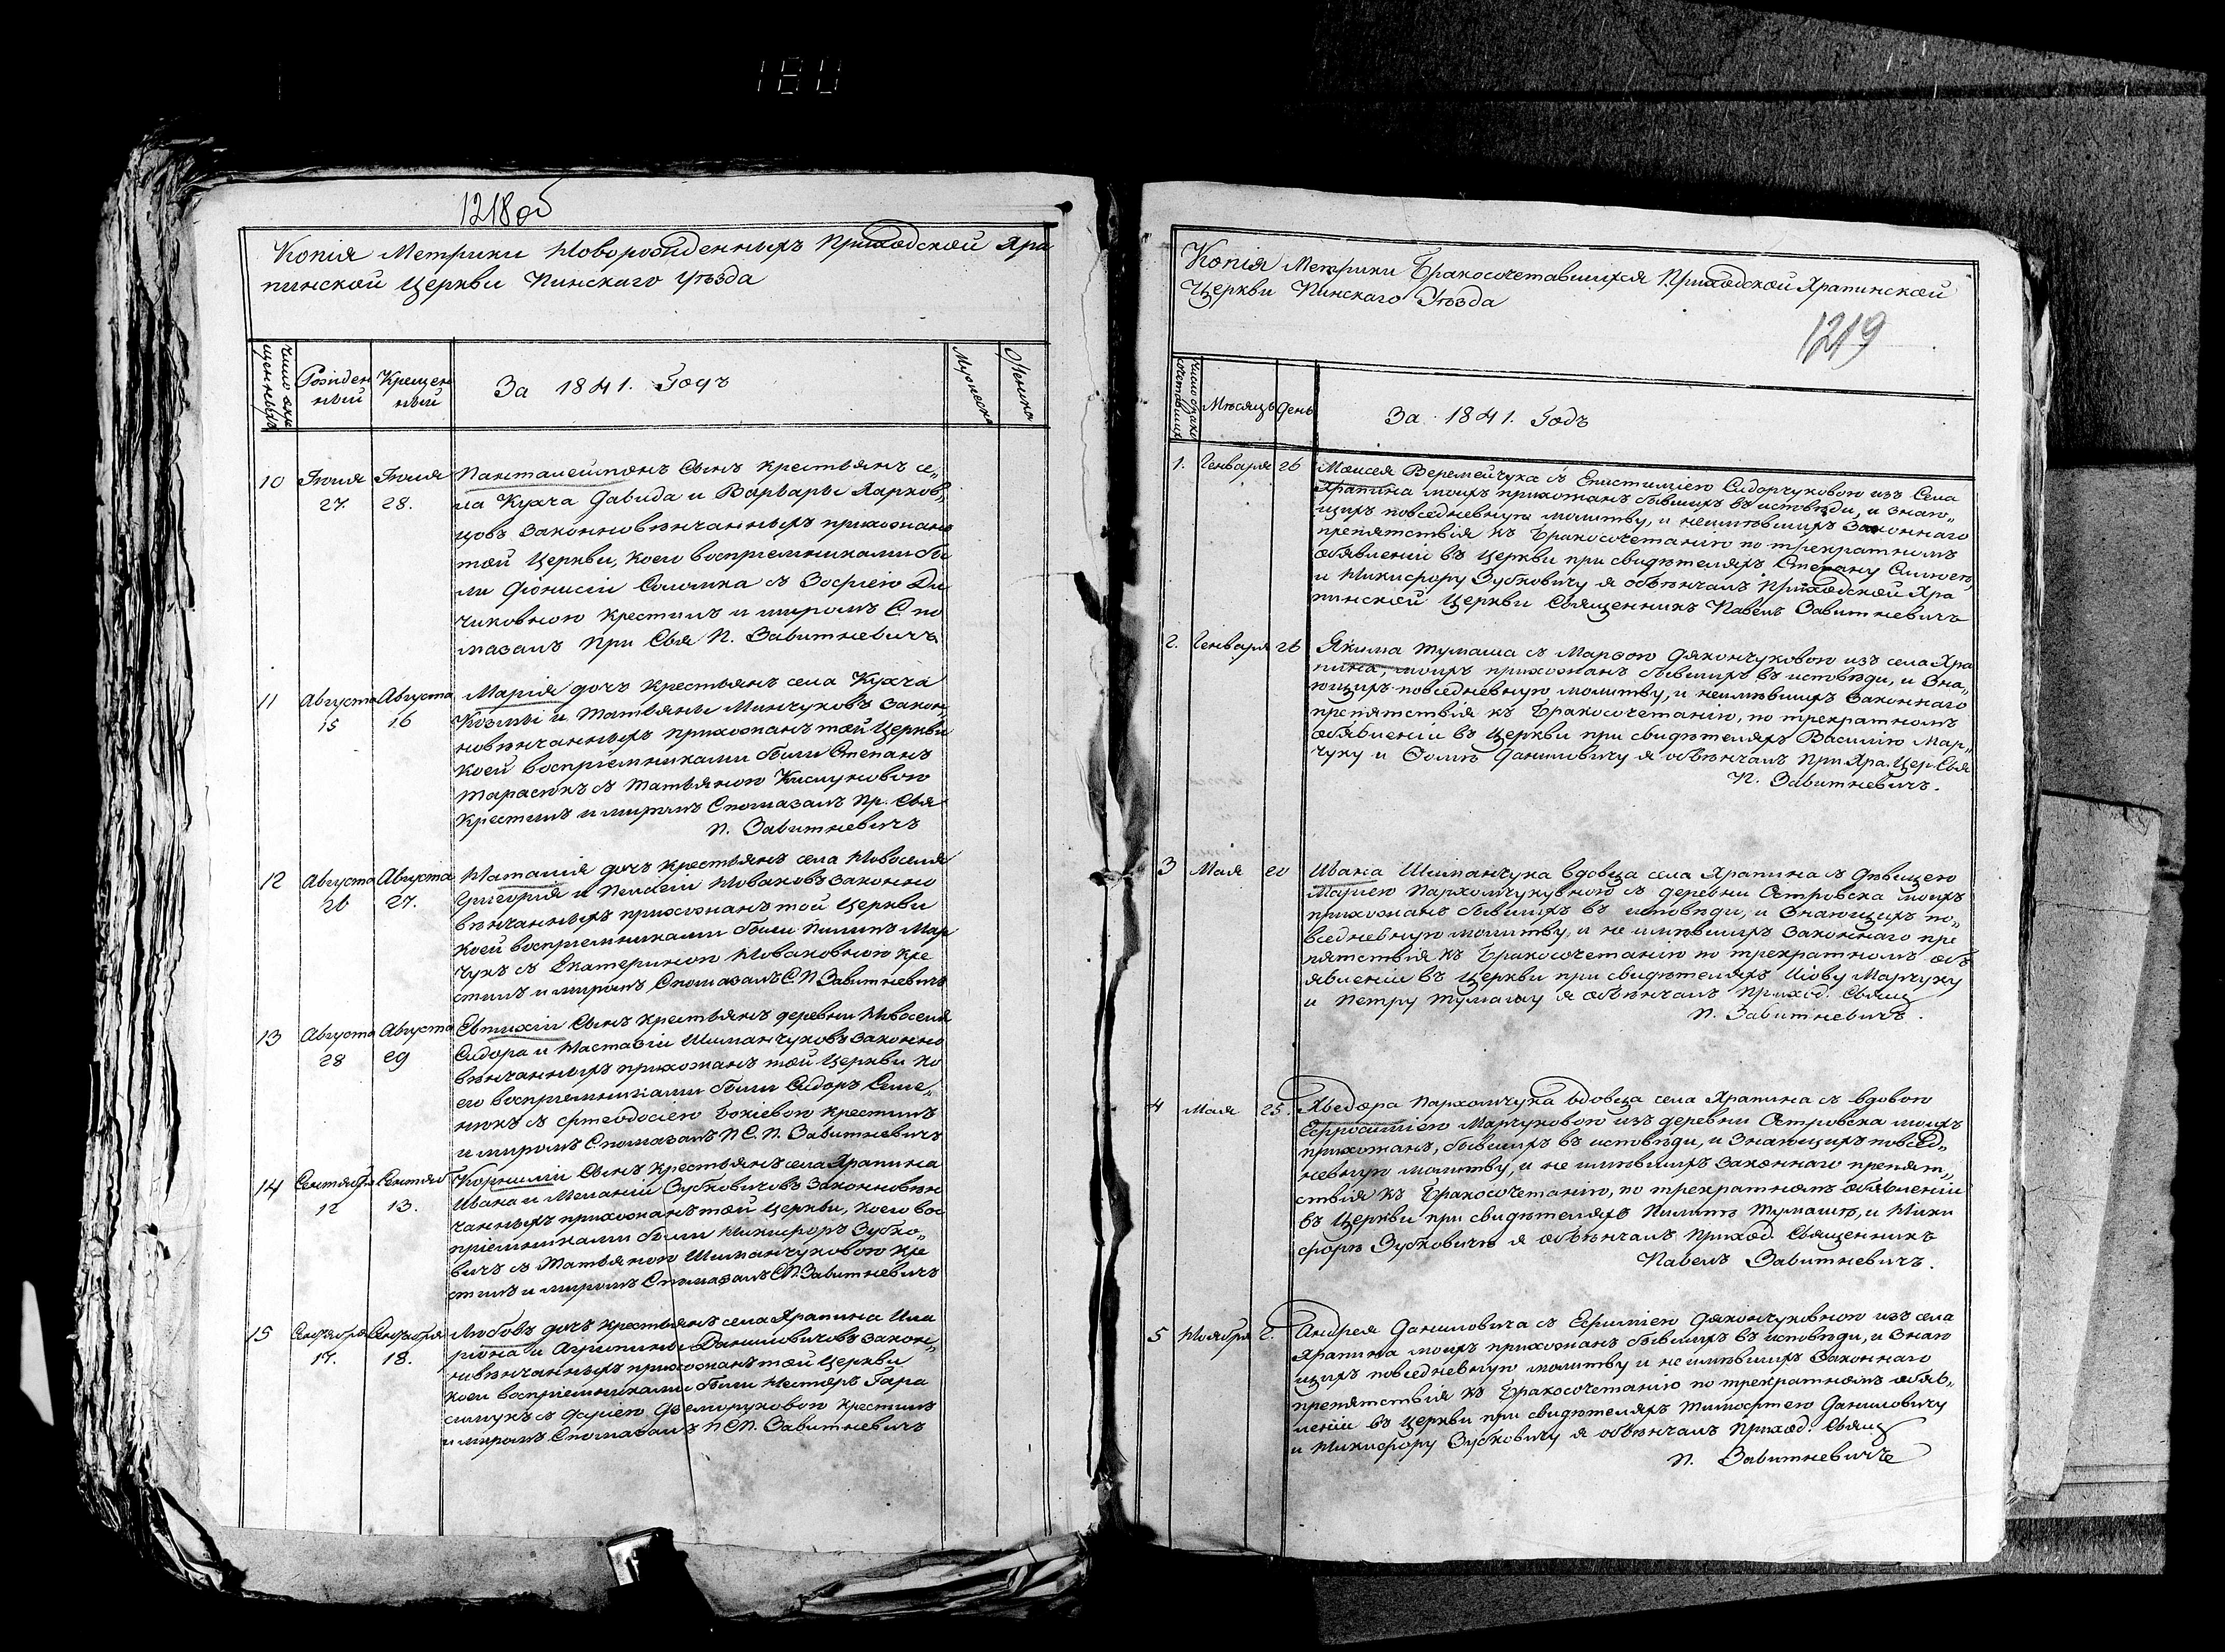 180
1218 об
Копія Метрики Новорожденныхъ Приходской Хра
пинской Церкви Пинскаго Уѣзда
Число окре
щенныхъ
Рожден
ный
Крещен
ный
За 1841. Годъ
Мужеска
Женска
10 Іюля 27. Іюля 28.
Панталеймонъ Сынъ крестьянъ се„
ла Кухча Давида и Варвары Харков„
цовъ законновѣнчанныхъ прихожанъ
той Церкви, коего воспріемниками бы
ли Діонисій Соломка съ Зофіею Ди
чиковною крестилъ и миромъ С по
мазалъ При Свя П. Завитневичъ
11 Августа 15 Августа 16
Марія дочь крестьянъ села Кухча
Козмы и Татьяны Минчуковъ закон„
новѣнчанныхъ прихожанъ той Церкви
коей воспріемниками были Степанъ
Тарасюкъ съ Татьяною Кислуновою
крестилъ и миромъ С помазалъ Пр. Свя
П. Завитневичъ
12 Августа 26 Августа 27.
Наталія дочь крестьянъ села Новоселя
Григорія и Пелагеи Новаковъ законно
вѣнчанныхъ прихожанъ той Церкви
коей воспріемниками были Пилипъ Мар
чукъ съ Екатериною Новаковною кре
стилъ и миромъ С помазалъ С. П Завитневичъ
13 Августа 28 Августа 29
Евтихій Сынъ крестьянъ деревни Новоселя
Сидора и Настазіи Шиманчуковъ законно
вѣнчанныхъ прихожанъ той Церкви ко
его воспріемниками были Сидоръ Семе„
нюкъ съ Фтеодосіею Божіевою крестилъ
и миромъ С помазалъ П С. П. Завитневичъ
14 Сентября 12 Сентяб 13.
Корнилій Сынъ крестьянъ села Храпина
Ивана и Меланіи Зубковичовъ законновѣн
чанныхъ прихожанъ той Церкви, коего вос
пріемниками были Никифоръ Зубко„
вичъ съ Татьяною Шиманчуковою кре
стилъ и миромъ С помазалъ С П. Завитневичъ
15 Сентября 17. Сентября 18.
Любовъ дочь крестьянъ села Храпина Ила
ріона и Агрипины Даниловичовъ закон„
новѣнчанныхъ прихожанъ той Церкви
коей воспріемниками были Несторъ Гара
симукъ съ Фціею крестилъ
и миромъ С помазалъ П С П. Завитневичъ
Копія Метрики Бракосочетавшихся Приходской Храпинской
Церкви Пинскаго Уѣзда
1219
Число брако
сочетавших
Мѣсяцъ
День
За 1841. Годъ
1. Генваря 26
Моисея Веремейчука съ Епистиміею Сидорчуковою изъ Села
Храпина моихъ прихожанъ бывшихъ въ исповѣди, и знаю„
щихъ повседневную молитву, и неимѣвшихъ Законнаго
препятствія къ Бракосочетанію по трекратномъ
объявленіи въ Церкви при свидѣтеляхъ Степану
и Никифору Зубковичу я обвѣнчалъ Приходской Хра
пинской Церкви Священникъ Павелъ Завитневичъ
2. Генваря 26
Якима Тумаша съ Марѳою Дякончуковою изъ села Хра
пина, моихъ прихожанъ бывшихъ въ исповѣди, и Зна„
ющихъ повседневную молитву, и неимѣвшихъ Законнаго
препятствія къ Бракосочетанію, по трекратномъ
объявленіи въ Церкви при свидѣтеляхъ Василію Мар„
чуку и Ѳомѣ Даниловичу я обвѣнчалъ При Хра. Цер. Свя
П. Завитневичъ.
3 Мая 20
Ивана Шиманчука вдовца села Храпина съ дѣвицею
Маріею Пархомчукувною съ деревни Островска моихъ
прихожанъ бывшихъ въ исповѣди, и Знающихъ по„
вседневную молитву, и не имѣвшихъ законнаго пре
пятствія къ Бракосочетанію по трекратномъ объ
явленіи въ Церкви при свидѣтеляхъ Иіову Марчуку
и Петру Тумашу я обвѣнчалъ Приход. Свящ
П. Завитневичъ.
4 Мая 25.
Хведора Пархомчука вдовца села Храпина съ вдовою
Ефросиміею Марчуковою изъ деревни Островска моихъ
прихожанъ, бывшихъ въ исповѣди, и Знающихъ повсед„
невную молитву, и не имѣвшихъ законнаго препят„
ствія къ Бракосочетанію, по трекратномъ объявленіи
въ Церкви при свидѣтеляхъ Пилипѣ Тумашѣ, и Ники
форѣ Зубковичѣ я обвѣнчалъ Приход. Священникъ
Павелъ Завитневичъ.
5 Ноября 2.
Андрея Даниловича съ Ефиміею Дякончуковною изъ села
Храпина моихъ прихожанъ бывшихъ въ исповѣди, и знаю
щихъ повседневную молитву и не имѣвшихъ Законнаго
препятствія къ Бракосочетанію по трекратномъ объяв„
леніи въ Церкви при свидѣтеляхъ Тимофтею Даниловичу
и Никифору Зубковичу я обвѣнчалъ Приход. Свящ
П. Завитневичъ